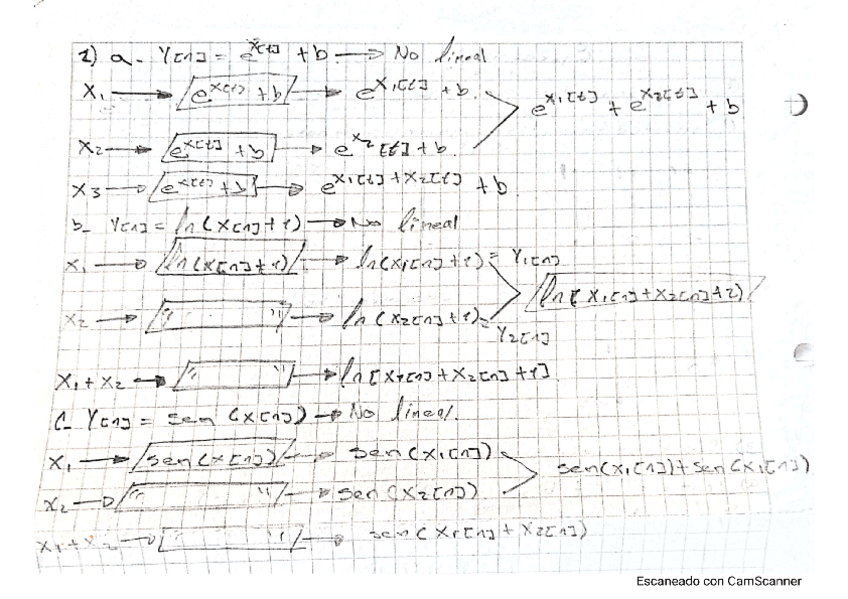 1) a- Y[n] = e^x[t] + b → No lineal
X1 → e^x[t] + b → e^x1[t] + b
e^x1[t] + e^x2[t] + b
X2 → e^x[t] + b → e^x2[t] + b
X3 → e^x[t] + b → e^x1[t]+x2[t] + b
b- Y[n] = ln(x[n]+1) → No lineal
X1 → ln(x[n]+1) → ln(x1[n]+1) = Y1[n]
ln[x1[n]+x2[n]+2)
X2 → " " → ln(x2[n]+1) = Y2[n]
X1+X2 → " " → ln[x1[n]+x2[n]+1]
C- Y[n] = sen(x[n]) → No lineal.
X1 → sen(x[n]) → sen(x1[n])
sen(x1[n])+sen(x1[n])
X2 → " " → sen(x2[n])
X1+X2 → " → sen(x1[n]+x2[n])
Escaneado con CamScanner